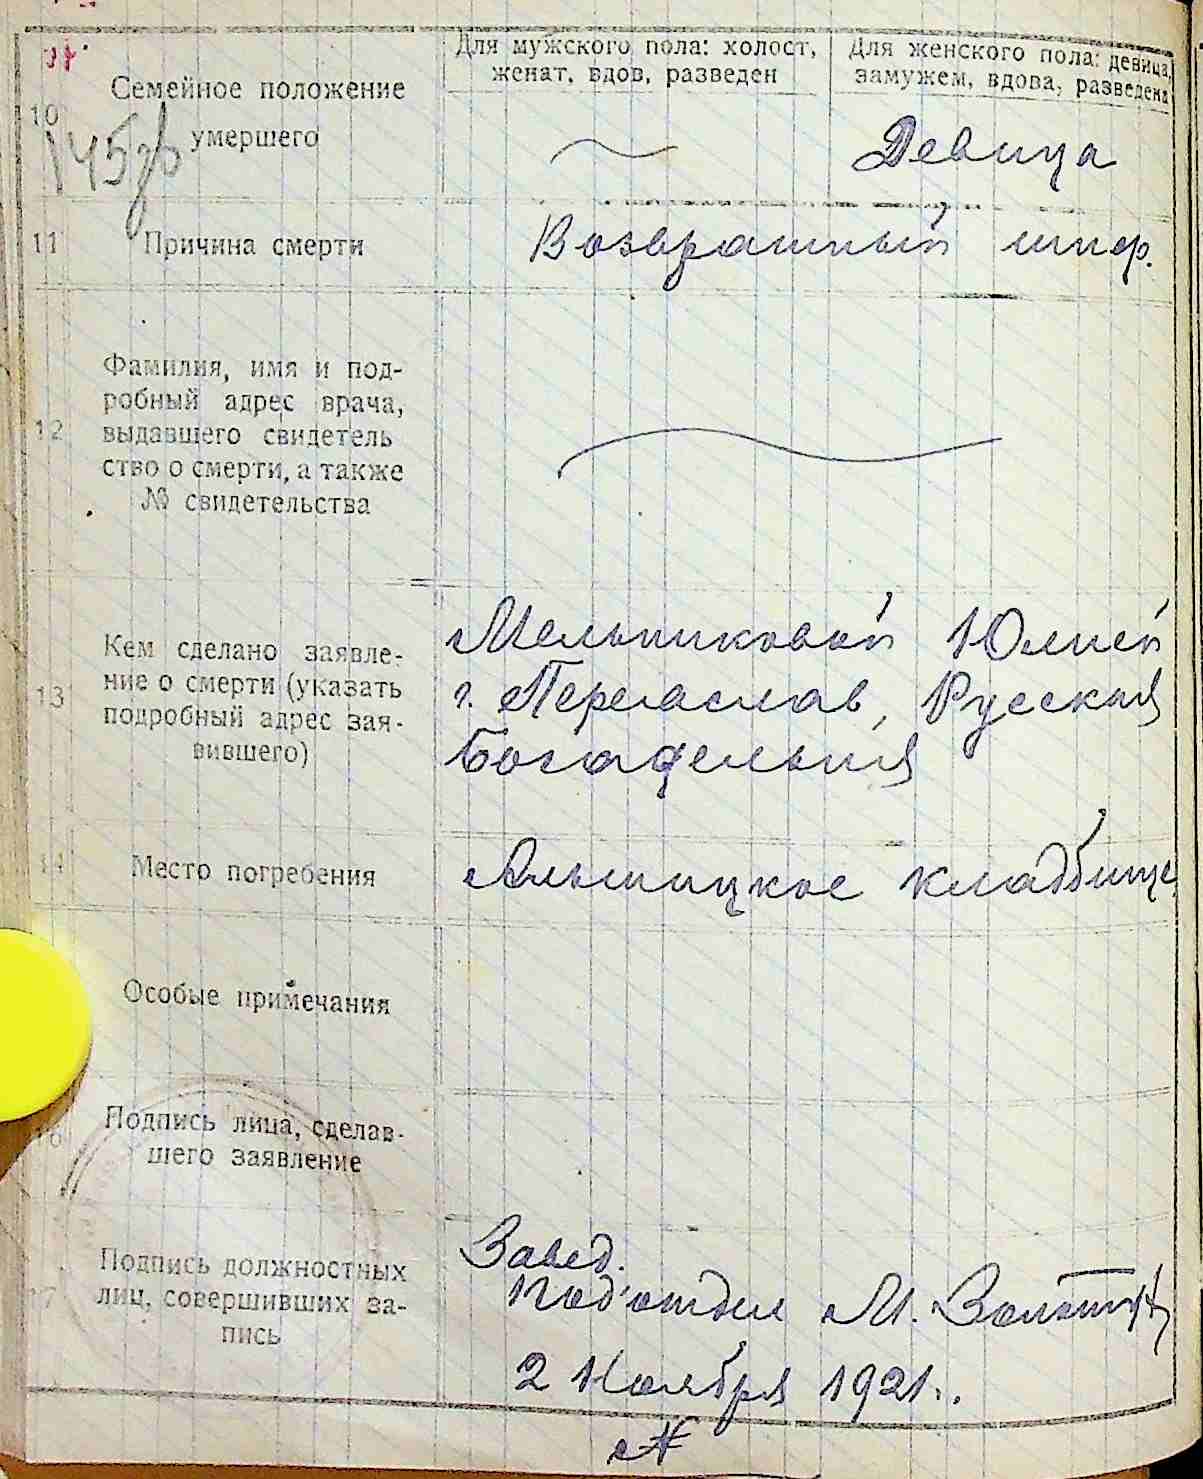 10
Семейное положение
умершего
Для мужского пола: холост,
женат, вдов, разведен
Для женского пола: девица,
замужем, вдова, разведена
Девица
11
Причина смерти
Возвратный тиф.
12
Фамилия, имя и под-
робный адрес врача,
выдавшего свидетель
ство о смерти, а также
№ свидетельства
13
Кем сделано заявле-
ние о смерти (указать
подробный адрес зая-
вившего)
Мельниковой Юлией
г. Переяслав, Русская
Богадельня
14
Место погребения
Альтицкое кладбище
Особые примечания
16
Подпись лица, сделав-
шего заявление
17
Подпись должностных
лиц, совершивших за-
пись
Завед.
Под'отдел М.
2 Ноября 1921 г.